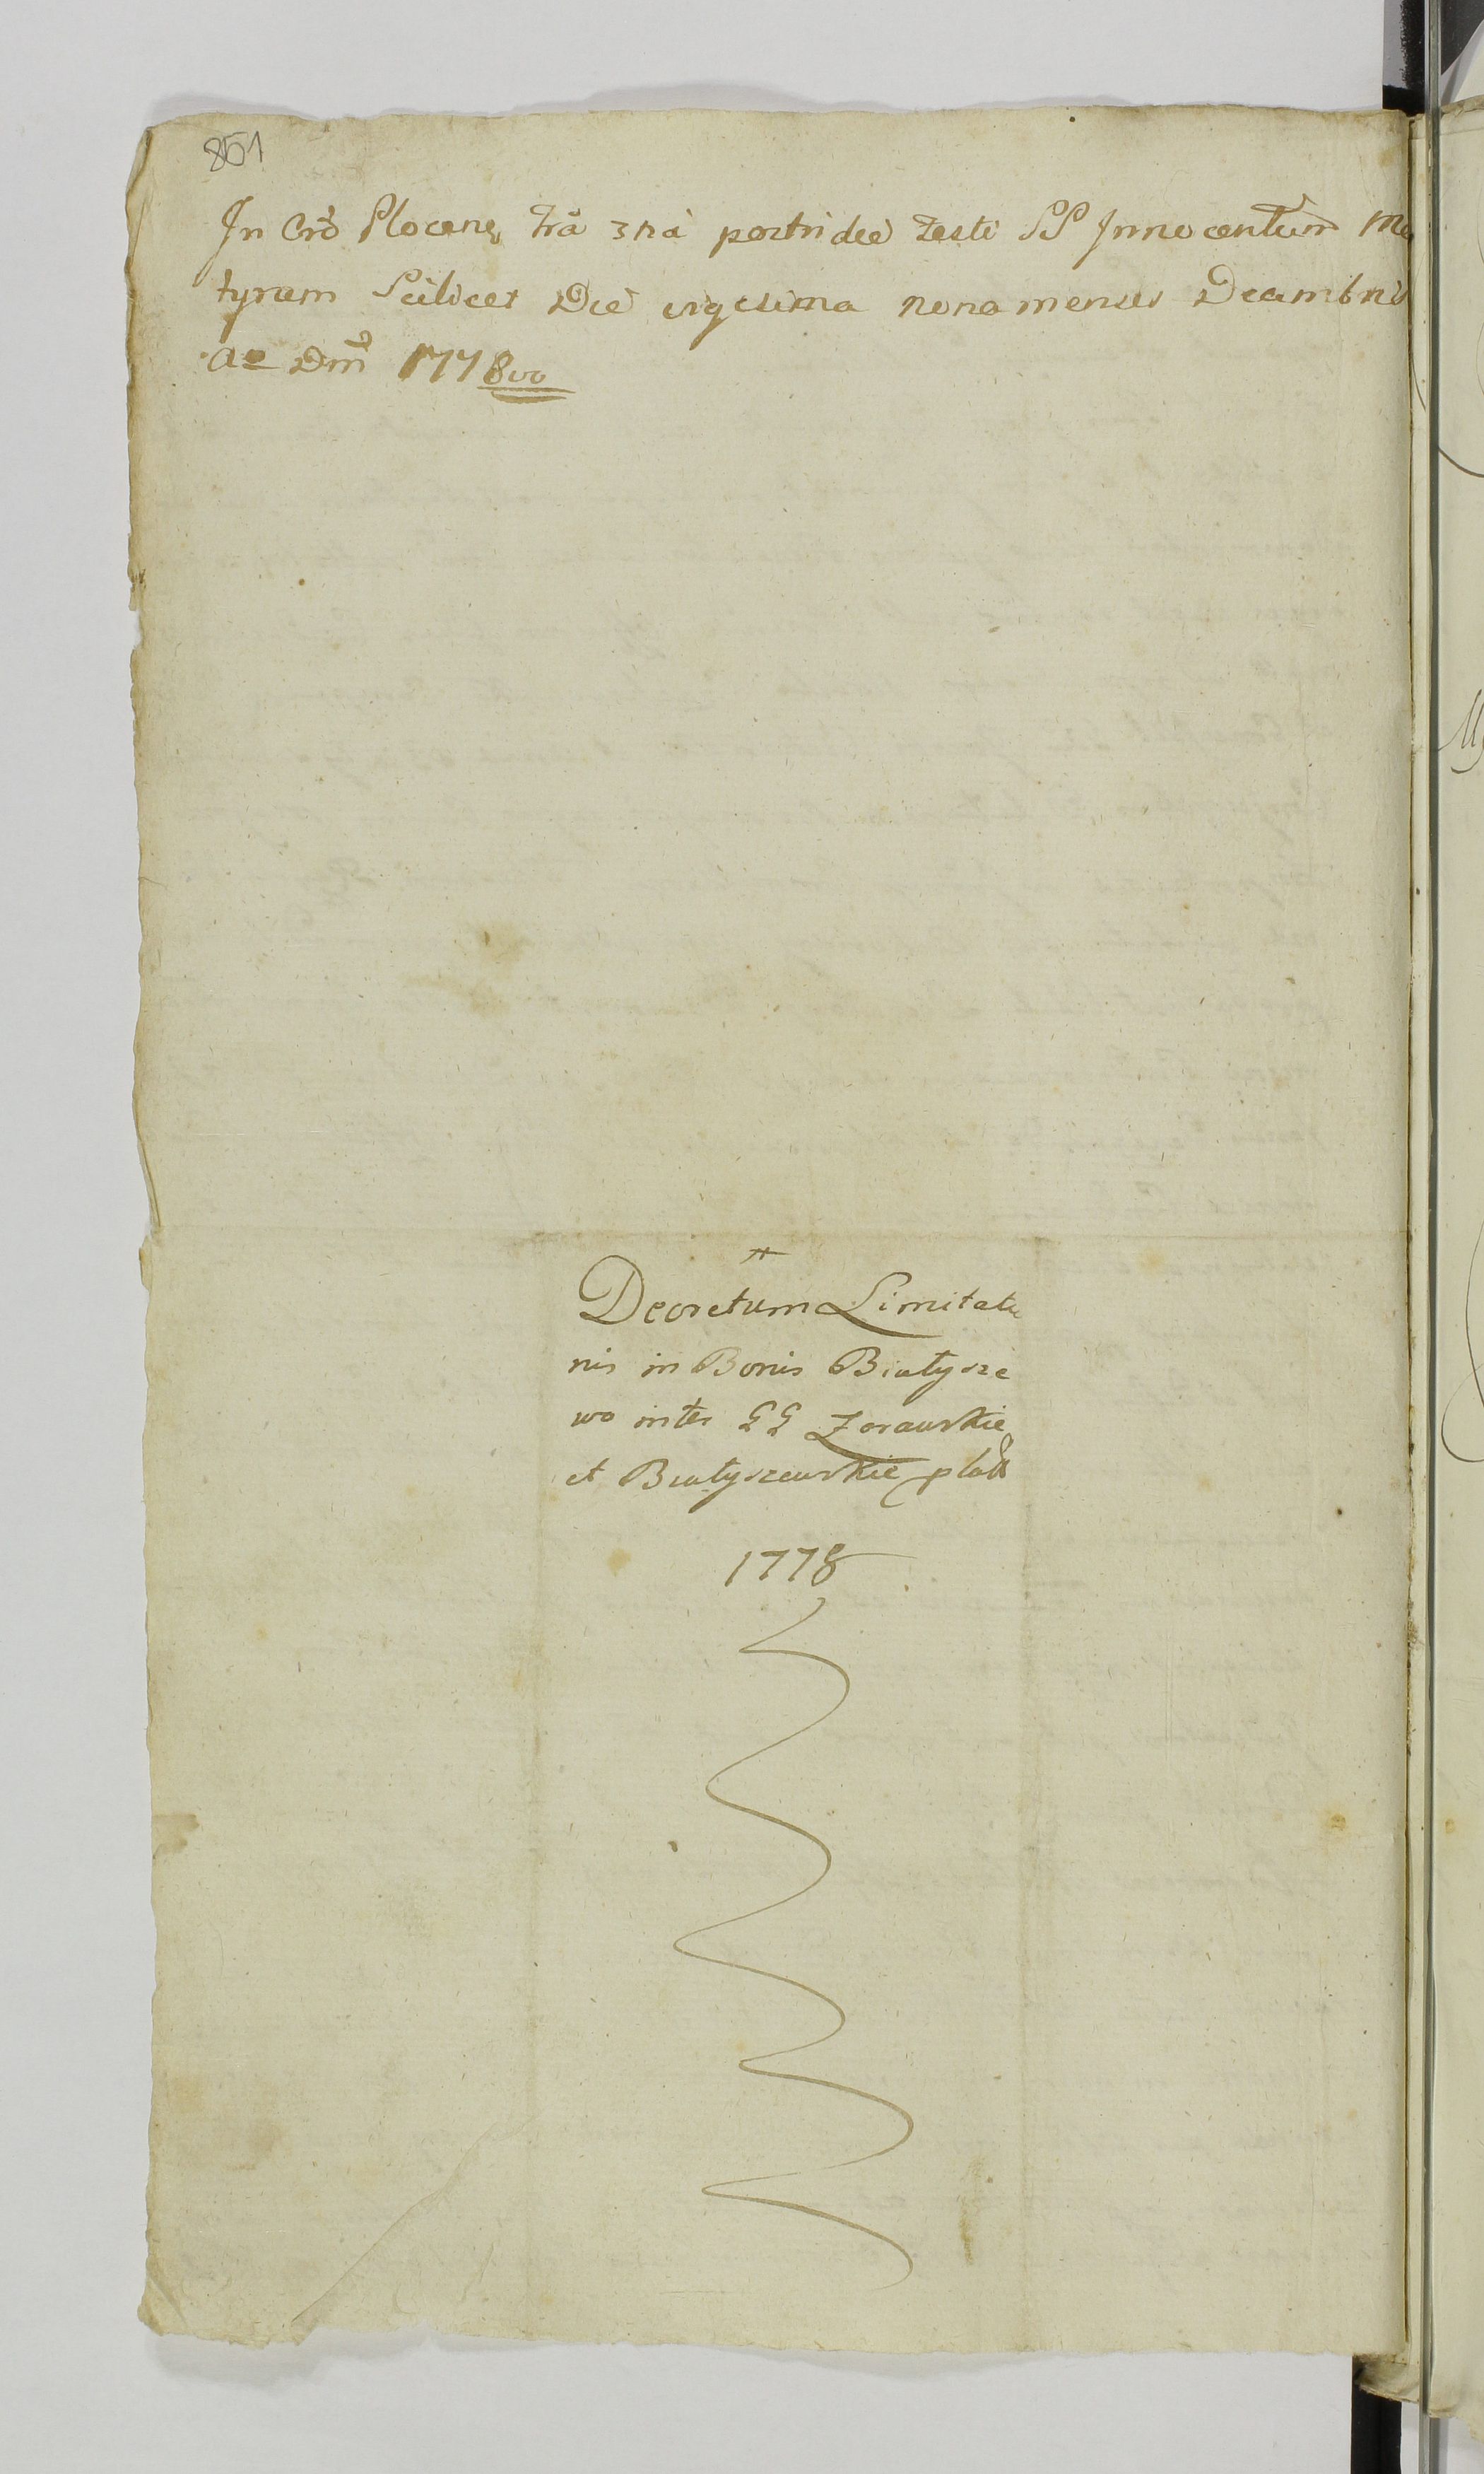 851
In Crō Plocen, frā 3tiā postridie festi SS Innocentum Mar
tyrum Scilicet Die vigesima nona mensis Decembris
Ao Dnī 1778vo
Decretum Limitatio
nis in Bonis Białysze
wo inter GG Zorawskie
et Białyszewskie
1778